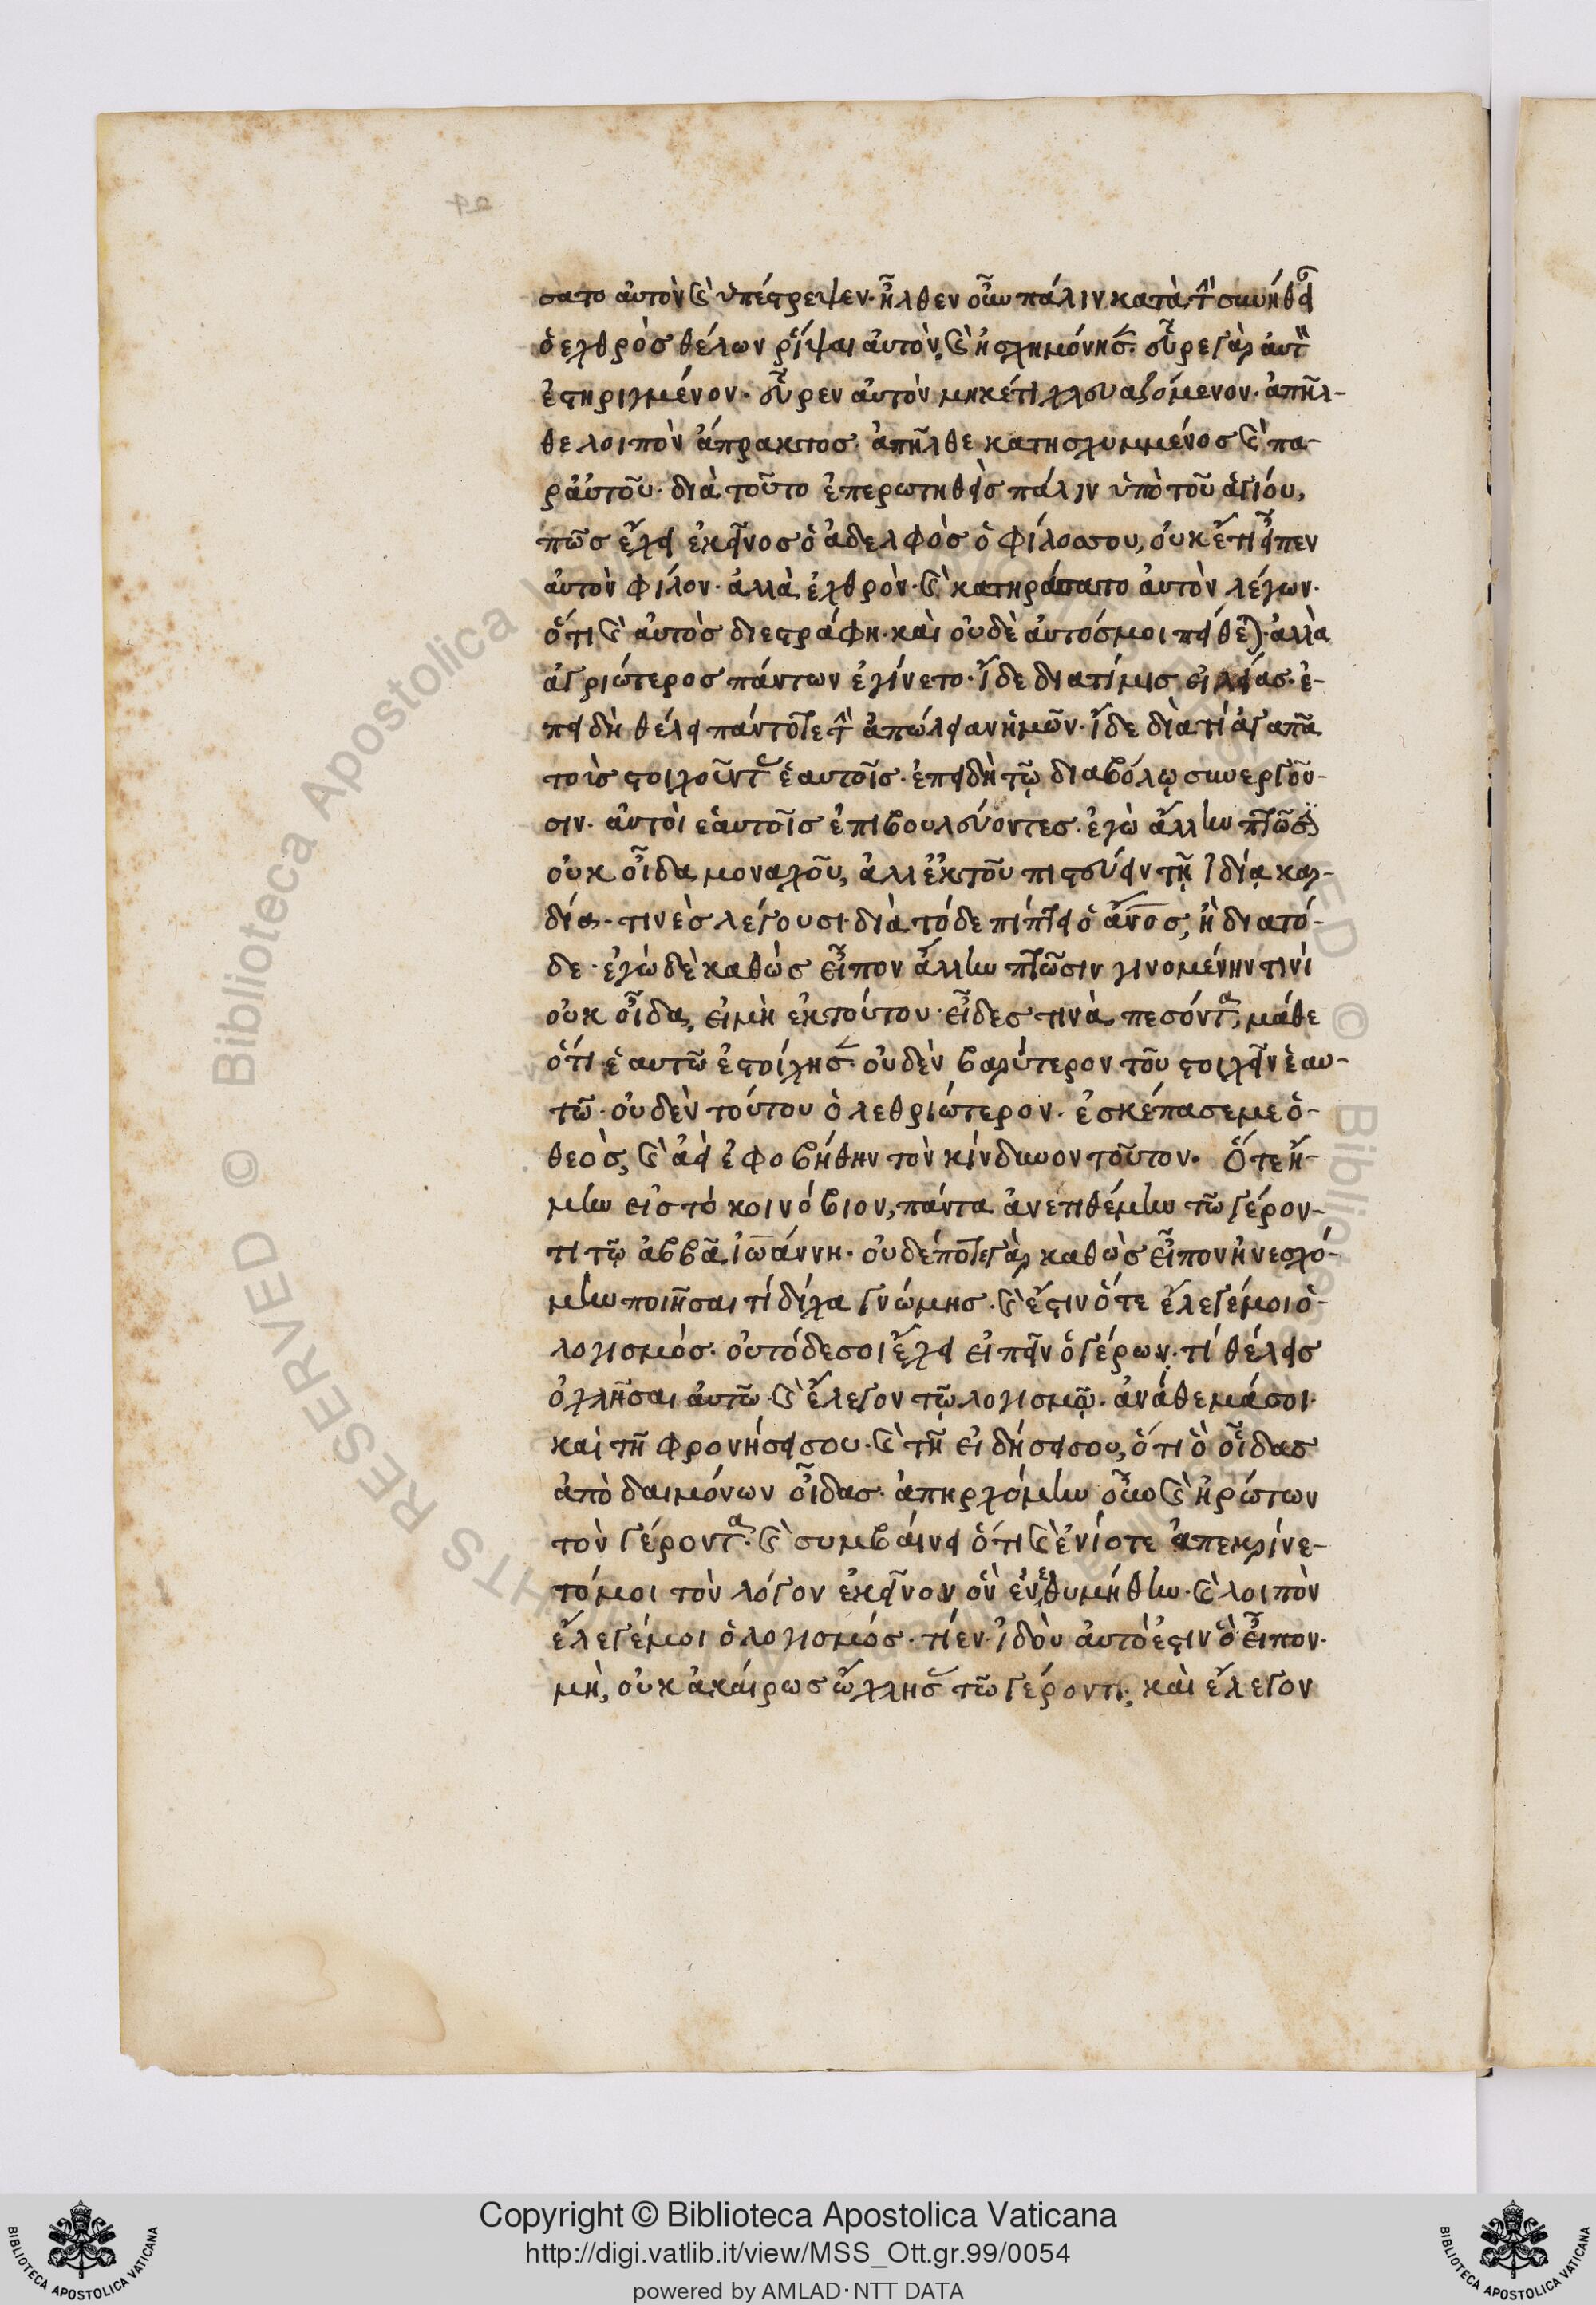 σατο αὐτὸν καὶ ὑπέστρεψεν. ἦλθεν οὖν πάλιν κατὰ τὴν συνήθειαν
ὁ ἐχθρὸς θέλων ῥίψαι αὐτὸν, καὶ ἠσχημόνησεν. εὗρε γὰρ αὐτὸν
ἐστηριγμένον. εὗρεν αὐτὸν μηκέτι χλευαζόμενον. ἀπῆλ-
θε λοιπὸν ἄπρακτος. ἀπῆλθε κατησχυμμένος καὶ πα-
ρ' αὐτοῦ. διὰ τοῦτο ἐπερωτηθεὶς πάλιν ὑπὸ τοῦ ἁγίου,
πῶς ἔχει ἐκεῖνος ὁ ἀδελφὸς ὁ φίλος σου, οὐκ ἔτι εἶπεν
αὐτὸν φίλον. ἀλλὰ ἐχθρὸν. καὶ κατηράσατο αὐτὸν λέγων.
ὅτι καὶ αὐτὸς διεστράφη. καὶ οὐδὲ αὐτός μοι πείθεται. ἀλλὰ
ἀγριώτερος πάντων ἐγίνετο. ἴδε διατί μισεῖ
πειδὴ θέλει πάντοτε τὴν ἀπώλειαν ἡμῶν. ἴδε διὰ τί ἀγαπᾶ
τοὺς στοιχοῦντας ἑαυτοῖς. ἐπειδὴ τῷ διαβόλῳ συνεργοῦ-
σιν. αὐτοὶ ἑαυτοῖς ἐπιβουλεύοντες. ἐγὼ ἄλλην πτῶσιν
οὐκ οἶδα μοναχοῦ, ἀλλ' ἐκ τοῦ πιστεύειν τῇ ἰδίᾳ καρ-
δίᾳ. τινὲς λέγουσι. διὰ τόδε πίπτει ὁ ἄνος, ἢ διὰ τό-
δε. ἐγὼ δὲ καθὼς εἶπον ἄλλην πτῶσιν γινομένην τινὶ
οὐκ οἶδα, εἰ μὴ ἐκ τούτου. εἶδες τινὰ πεσόντα, μάθε
ὅτι ἑαυτῶ ἐστοίχησεν. οὐδὲν βαρύτερον τοῦ στοιχεῖν ἑαυ-
τῶ. οὐδὲν τούτου ὀλεθριώτερον. ἐσκέπασέ με ὁ
θεὸς, καὶ ἀεὶ ἐφοβήθην τὸν κίνδυνον τοῦτον. Ὅτε ἤ-
μην εἰς τὸ κοινόβιον, πάντα ἀνετιθέμην τῶ γέρον-
τι τῷ ἀββᾶ ἰωάννη. οὐδέποτε γὰρ καθὼς εἶπον ἠνεσχό-
μην ποιῆσαι τί δίχα γνώμης. καὶ ἔστιν ὅτε ἔλεγέ μοι ὁ
λογισμός. οὐ τόδε σοι ἔχει εἰπεῖν ὁ γέρων. τί θέλεις
ὀχλῆσαι αὐτῶ. καὶ ἔλεγον τῷ λογισμῷ. ἀνάθεμά σοι.
καὶ τῆ φρονήσει σου. καὶ τῆ εἰδήσει σου, ὅτι ὃ οἶδας
ἀπὸ δαιμόνων οἶδας. ἀπηρχόμην οὖν καὶ ἠρώτων
τὸν γέροντα. καὶ συμβαίνει ὅτι καὶ ἐνίοτε ἀπεκρίνε-
τό μοι τὸν λόγον ἐκεῖνον ὃν ἐνεθυμήθην. καὶ λοιπὸν
ἔλεγέ μοι ὁ λογισμός. τί ἐν. ἰδοὺ αὐτό ἐστιν ὃ εἶπον.
μὴ, οὐκ ἀκαίρως ὤχλησας τῶ γέροντι; καὶ ἔλεγον
Copyright © Biblioteca Apostolica Vaticana
http://digi.vatlib.it/view/MSS_Ott.gr.99/0054
powered by AMLAD·NTT DATA